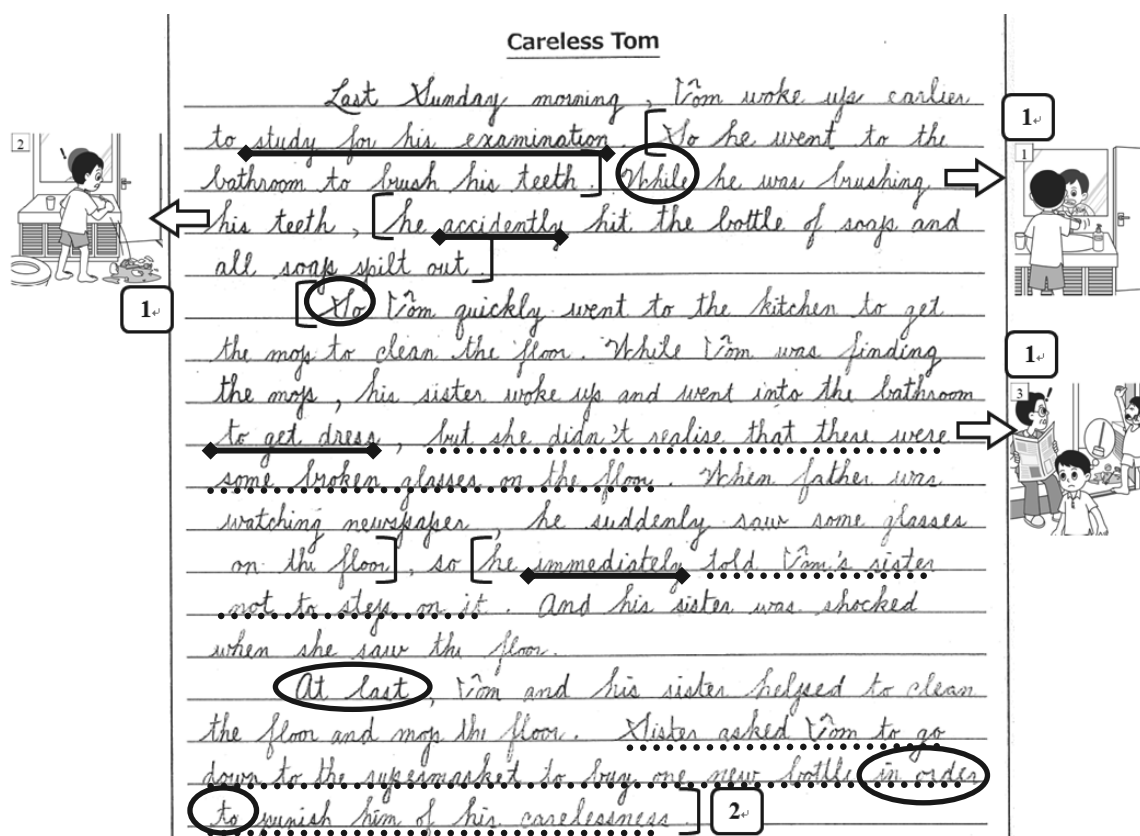 Careless Tom
Last Sunday morning, Tom woke up earlier
to study for his examination. So he went to the
bathroom to brush his teeth. While he was brushing
his teeth, he accidently hit the bottle of soap and
all soap spilt out.
So Tom quickly went to the kitchen to get
the mop to clean the floor. While Tom was finding
the mop, his sister woke up and went into the bathroom
to get dress, but she didn't realise that there were
some broken glasses on the floor. When father was
watching newspaper, he suddenly saw some glasses
on the floor, so he immediately told Tom's sister
not to step on it. And his sister was shocked
when she saw the floor.
At last, Tom and his sister helped to clean
the floor and mop the floor. Sister asked Tom to go
down to the supermarket to buy one new bottle in order
to punish him of his carelessness.
2
1
1
1
1
3
2